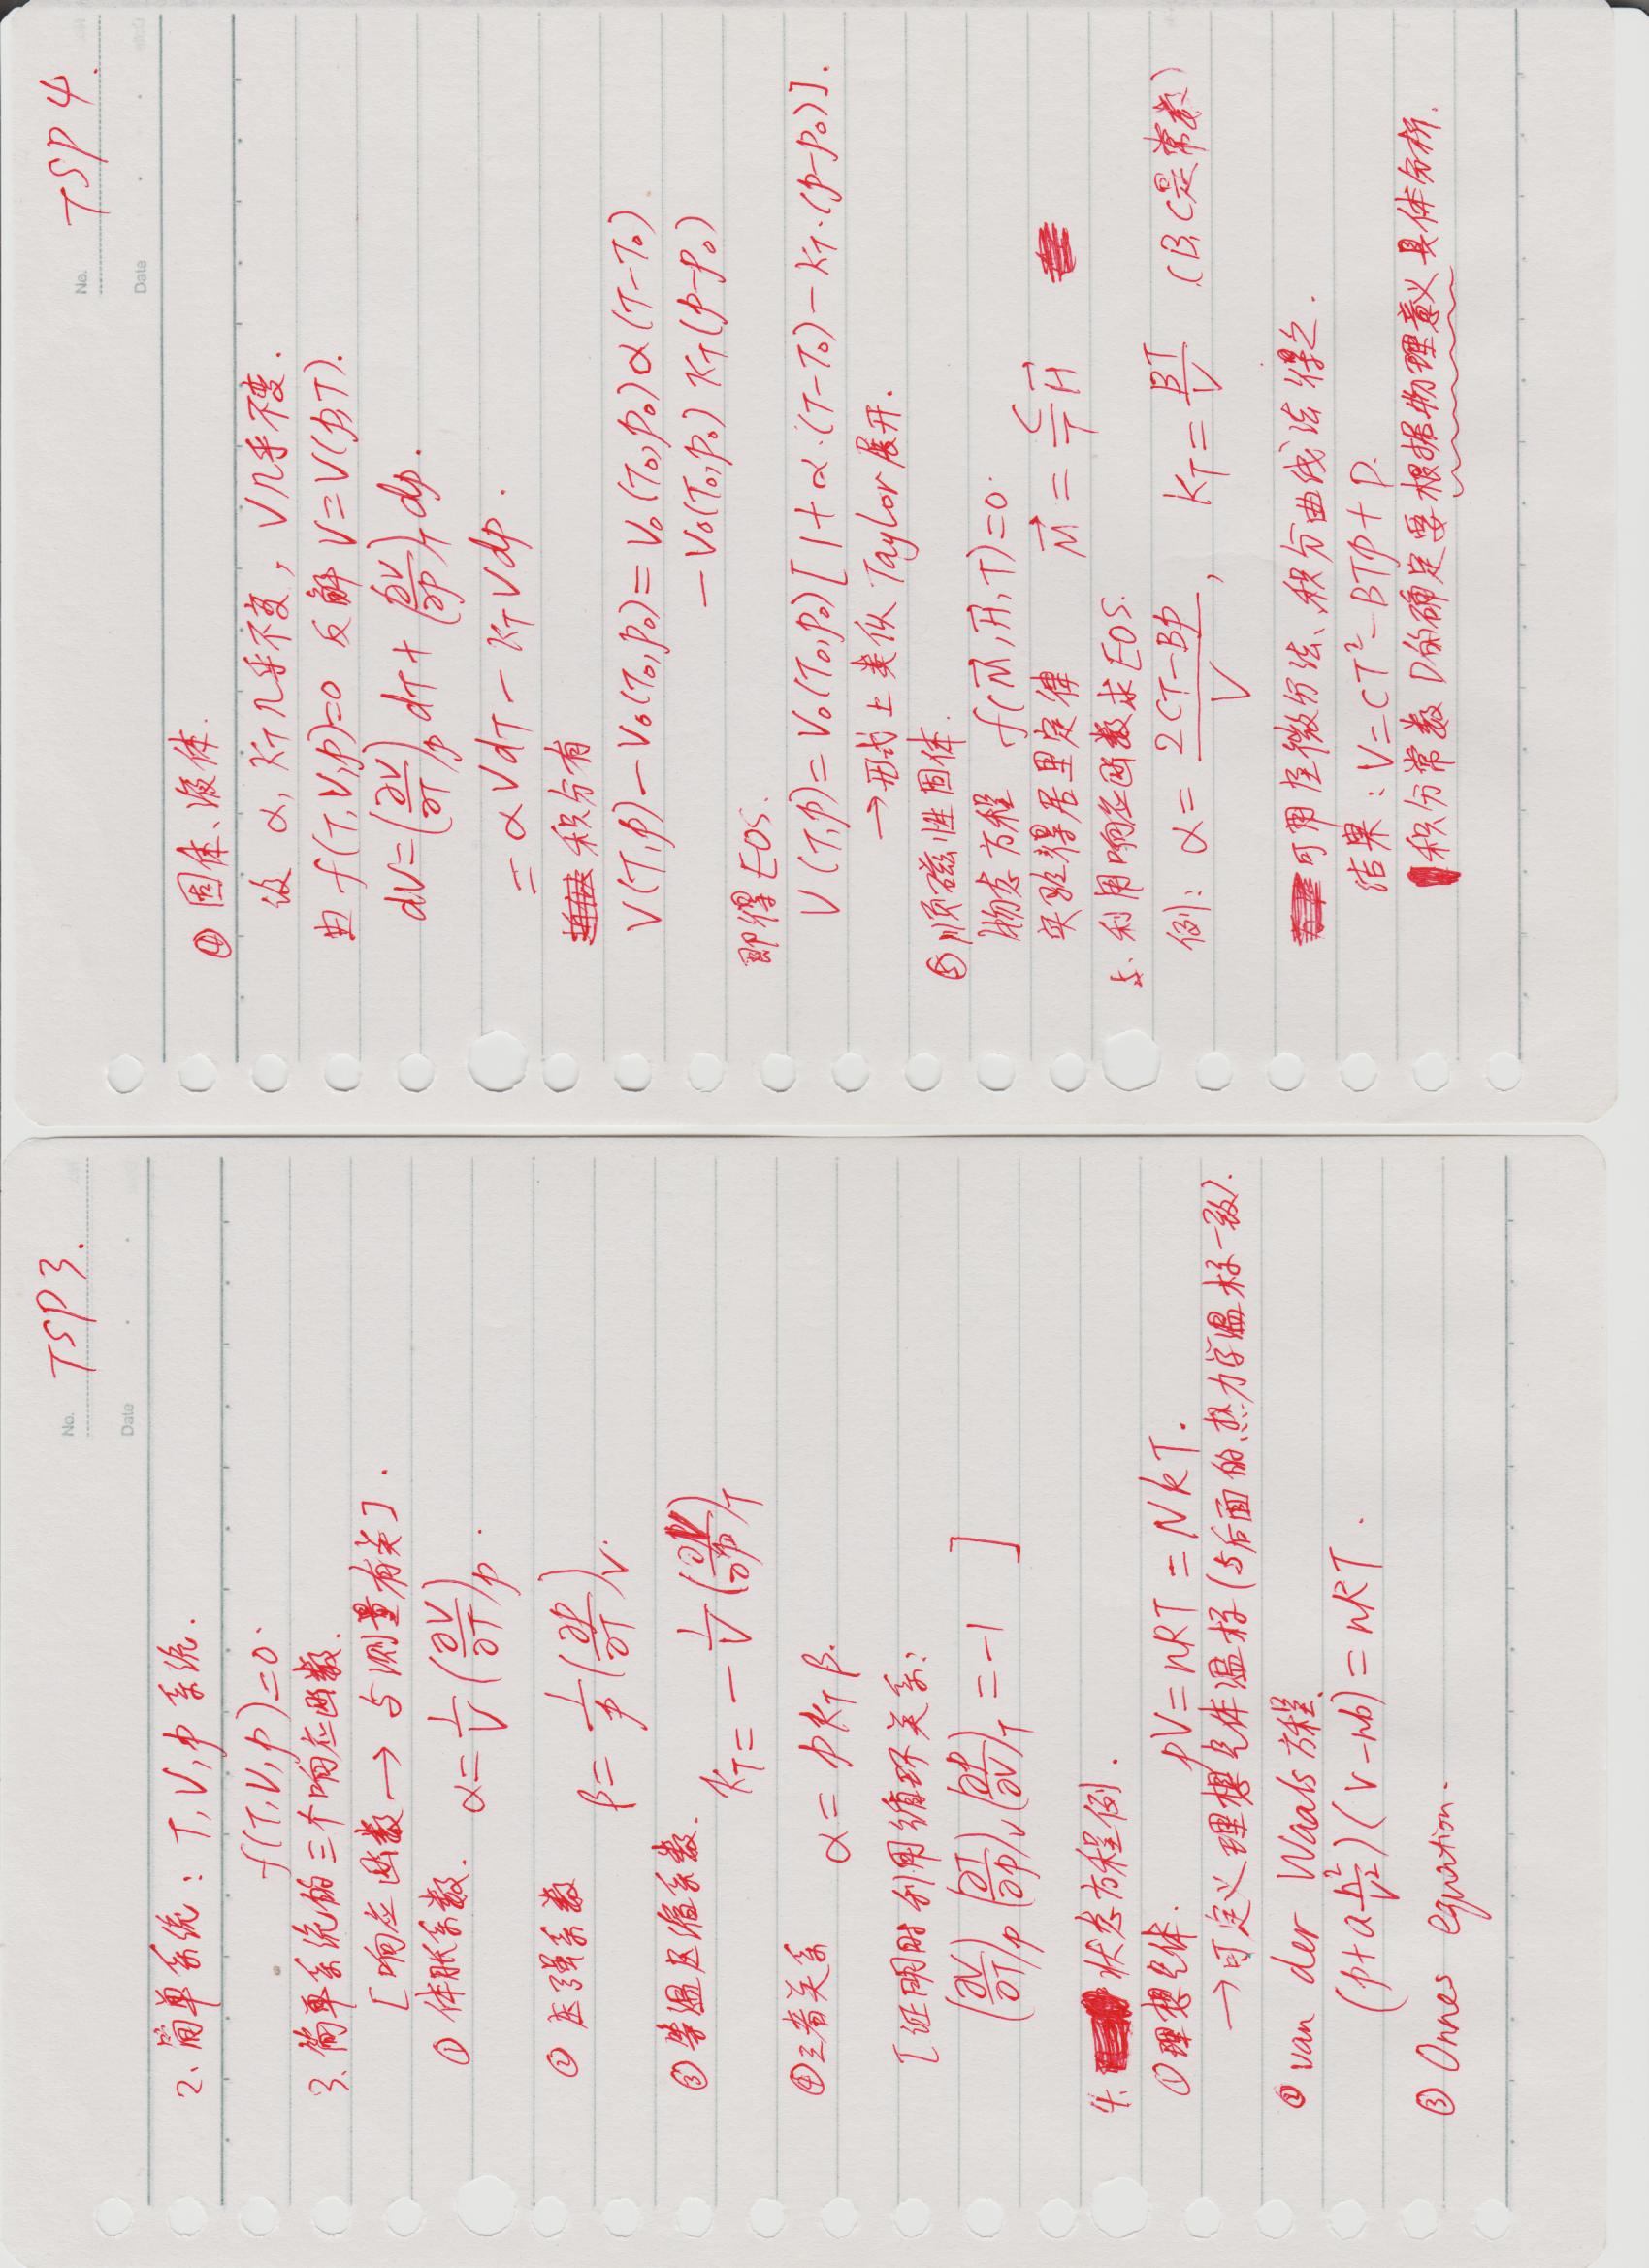 No. TSP 3.
Date
2、简单系统: T, V, p 系统.
f(T,V,p)=0.
3、简单系统的三个响应函数.
[响应函数 → 与测量有关].
① 体胀系数. α = 1/V (∂V/∂T)_p.
② 压强系数 β = 1/p (∂p/∂T)_V.
③ 等温压缩系数. k_T = - 1/V (∂V/∂p)_T
④ 三者关系 α = p k_T β.
[证明时利用循环关系:
(∂V/∂T)_p (∂T/∂p)_V (∂p/∂V)_T = -1 ]
4. 状态方程例.
① 理想气体. pV = nRT = NkT.
→可定义理想气体温标(与后面的热力学温标一致).
② van der Waals 方程.
(p+a n²/V²)(V-nb) = nRT.
③ Onnes equation.
No. TSP 4.
Date
④ 固体、液体.
设 α, k_T 几乎不变, V几乎不变.
由 f(T,V,p)=0 反解 V=V(p,T).
dV = (∂V/∂T)_p dT + (∂V/∂p)_T dp.
= αVdT - k_T Vdp.
积分有
V(T,p) - V₀(T₀,p₀) = V₀(T₀,p₀) α (T-T₀)
- V₀(T₀,p₀) k_T (p-p₀)
即得 EOS.
V(T,p) = V₀(T₀,p₀) [1+α·(T-T₀) - k_T·(p-p₀)].
→形式上类似 Taylor 展开.
⑤ 顺磁性固体.
物态方程 f(M⃗,H⃗,T)=0.
实验得居里定律 M⃗ = C/T H⃗
5、利用响应函数求 EOS.
例: α = (2CT-Bp)/V, k_T = BT/V (B,C是常数)
可用全微分法、积分曲线法得之.
结果: V=CT²-BTp+D.
积分常数 D的确定要根据物理意义具体分析.